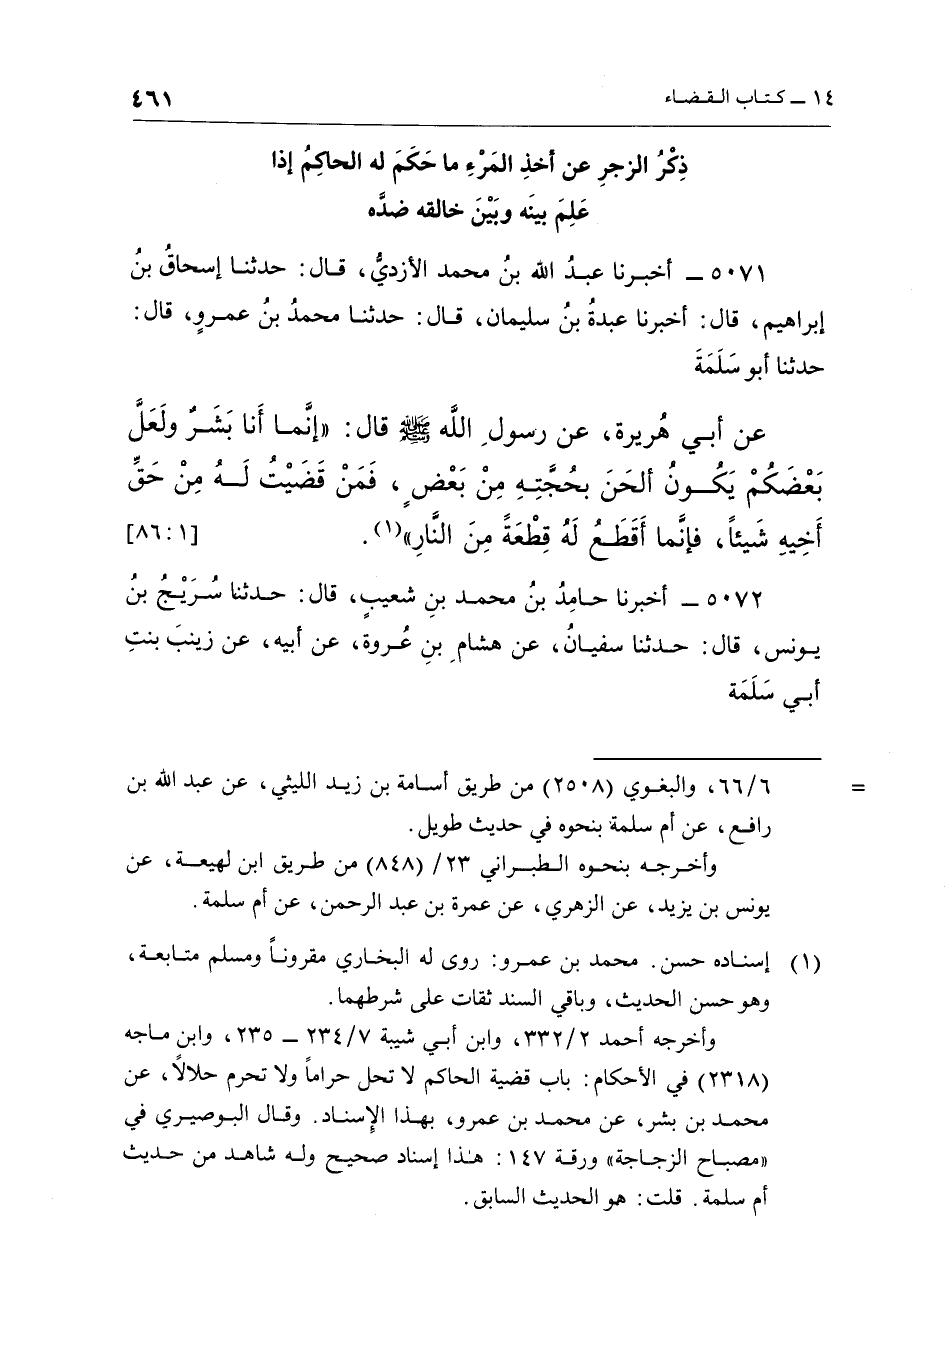 ١٤ ــ كتاب القضاء
٤٦١
ذِكْرُ الزجرِ عن أخذِ المَرْءِ ما حَكَمَ له الحاكِمُ إذا
عَلِمَ بينَه وبَيْنَ خالقه ضدَّه
٥٠٧١ ــ أخبرنا عبدُ الله بنُ محمد الأزديُّ، قال: حدثنا إسحاقُ بنُ
إبراهيم، قال: أخبرنا عبدةُ بنُ سليمان، قال: حدثنا محمدُ بنُ عمرٍو، قال:
حدثنا أبو سَلَمَةَ
عن أبي هُريرة، عن رسولِ اللَّه ﷺ قال: «إنَّما أنا بَشَرٌ ولَعَلَّ
بَعْضَكُمْ يَكُونُ ألحَنَ بحُجَّتِهِ مِنْ بَعْضٍ، فَمَنْ قَضَيْتُ لَهُ مِنْ حَقِّ
أَخِيهِ شَيئاً، فإنَّما أَقطَعُ لَهُ قِطْعَةً مِنَ النَّارِ»(١). [٨٦:١]
٥٠٧٢ ــ أخبرنا حامِدُ بنُ محمد بنِ شعيبٍ، قال: حدثنا سُرَيْجُ بنُ
يونس، قال: حدثنا سفيانُ، عن هشامِ بنِ عُروة، عن أبيه، عن زينبَ بنتِ
أبي سَلَمَة
= ٦٦/٦، والبغوي (٢٥٠٨) من طريق أسامة بن زيد الليثي، عن عبد الله بن
رافع، عن أم سلمة بنحوه في حديث طويل.
وأخرجه بنحوه الطبراني ٢٣/ (٨٤٨) من طريق ابن لهيعة، عن
يونس بن يزيد، عن الزهري، عن عمرة بن عبد الرحمن، عن أم سلمة.
(١) إسناده حسن. محمد بن عمرو: روى له البخاري مقروناً ومسلم متابعة،
وهو حسن الحديث، وباقي السند ثقات على شرطهما.
وأخرجه أحمد ٣٣٢/٢، وابن أبي شيبة ٢٣٤/٧ ــ ٢٣٥، وابن ماجه
(٢٣١٨) في الأحكام: باب قضية الحاكم لا تحل حراماً ولا تحرم حلالاً، عن
محمد بن بشر، عن محمد بن عمرو، بهذا الإسناد. وقال البوصيري في
«مصباح الزجاجة» ورقة ١٤٧: هذا إسناد صحيح وله شاهد من حديث
أم سلمة. قلت: هو الحديث السابق.